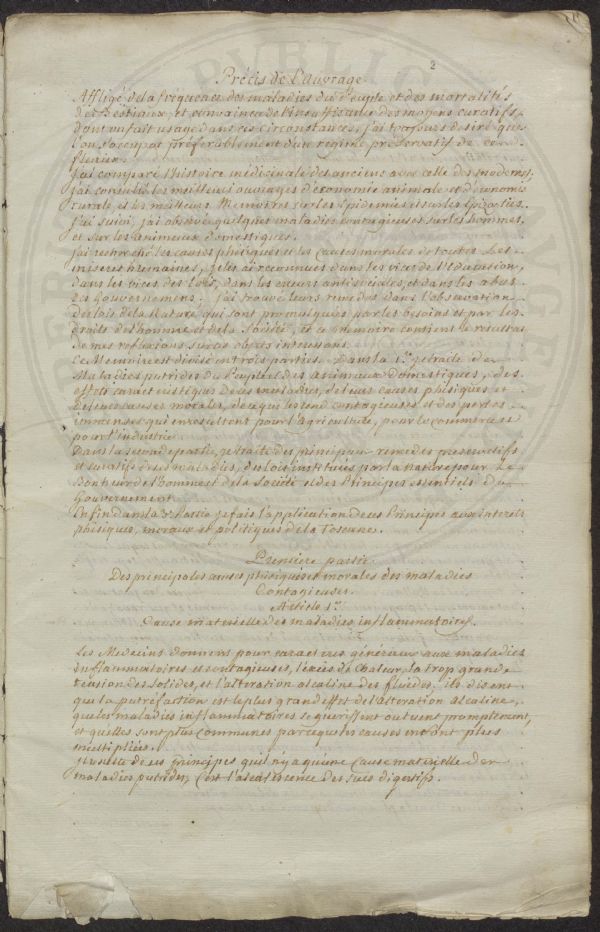 2
Précis de l'Ouvrage
Affligé de la fréquence des maladies du Peuple et des mortalités
des Bestiaux, et convaincu de l'insuffisance des moyens curatifs,
dont on fait usage dans ces circonstances, j'ai toujours desiré que
l'on s'occupat préferablement d'un regime préservatif de ces
fleaux.
J'ai comparé l'histoire médicinale des anciens avec celle des modernes;
j'ai consulté les meilleurs ouvrages d'économie animale et d'économie
rurale et les meilleurs Memoires sur les Epidemies et sur les Epizooties.
J'ai suivi, j'ai observé quelques maladies contagieuses sur les hommes,
et sur les animaux domestiques.
J'ai recherché les causes phisiques et les causes morales de toutes les
miseres humaines, je les ai reconnues dans les vices de l'Education,
dans les vices des loix, dans les erreurs antisociales, et dans les abus
des Gouvernemens; j'ai trouvé leurs remedes dans l'observation
des lois de la Nature qui sont promulguées par les besoins et par les
droits de l'homme et de la Société, et ce memoire contient le resultat
de mes reflexions sur ces objets interessans.
Ce Memoire est divisé en trois parties. Dans la 1.re je traite des
Maladies putrides du Peuple et des animaux domestiques, des
effets caracteristiques de ces maladies, de leurs causes phisiques et
de leurs causes morales, de ce qui les rend contagieuses et des pertes
immenses qui en resultent pour l'agriculture, pour le commerce et
pour l'industrie.
Dans la seconde partie, je traite des principaux remedes preservatifs
et curatifs de ces maladies, des lois instituées par la nature pour le
Bonheur de l'homme et de la Société et des Principes essentiels du
Gouvernement.
Enfin dans la 3.e Partie je fais l'application de ces Principes aux interets
phisiques, moraux et politiques de la Toscane.
Premiere partie.
Des principales causes phisiques et morales des maladies
Contagieuses.
Article 1.r
Cause materielle des maladies inflammatoires.
Les Medecins donnent pour caracteres généraux aux maladies
inflammatoires et contagieuses, l'excès de chaleur, la trop grande
tension des solides, et l'alteration alcaline des fluides, ils disent
que la putréfaction est le plus grand effet de l'alteration alcaline,
que les maladies inflammatoires se guerissent ou tuent promptement,
et qu'elles sont plus communes parceque les causes en sont plus
multipliées.
Il resulte de ces principes qu'il n'y a qu'une cause materielle des
maladies putrides, c'est l'alcalescence des sucs digestifs.